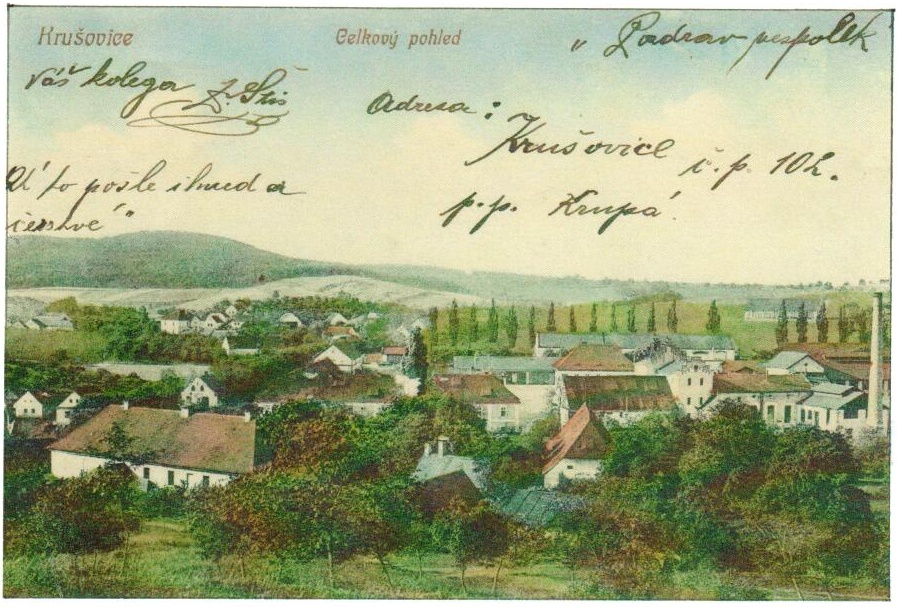 Krušovice
Celkový pohled
„Pozdrav pospolek
Váš kolega
Adresa:
Krušovice č.p. 102.
p.p. Krupá.
to pošle ihned a
čerstvé"